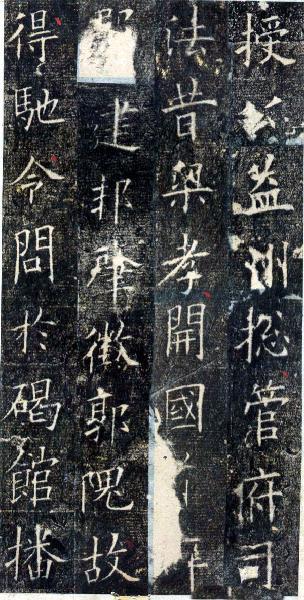 授公益州揔管府司
法昔梁孝開國
建邦肇徵郭隗故
得馳令問於碣館播